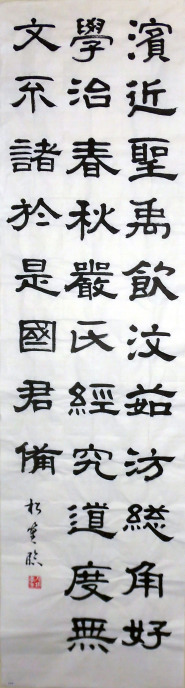 濱近聖禹飲汶茹汸総角好
學治春秋嚴氏經究道度無
文不諸於是國君備
臨